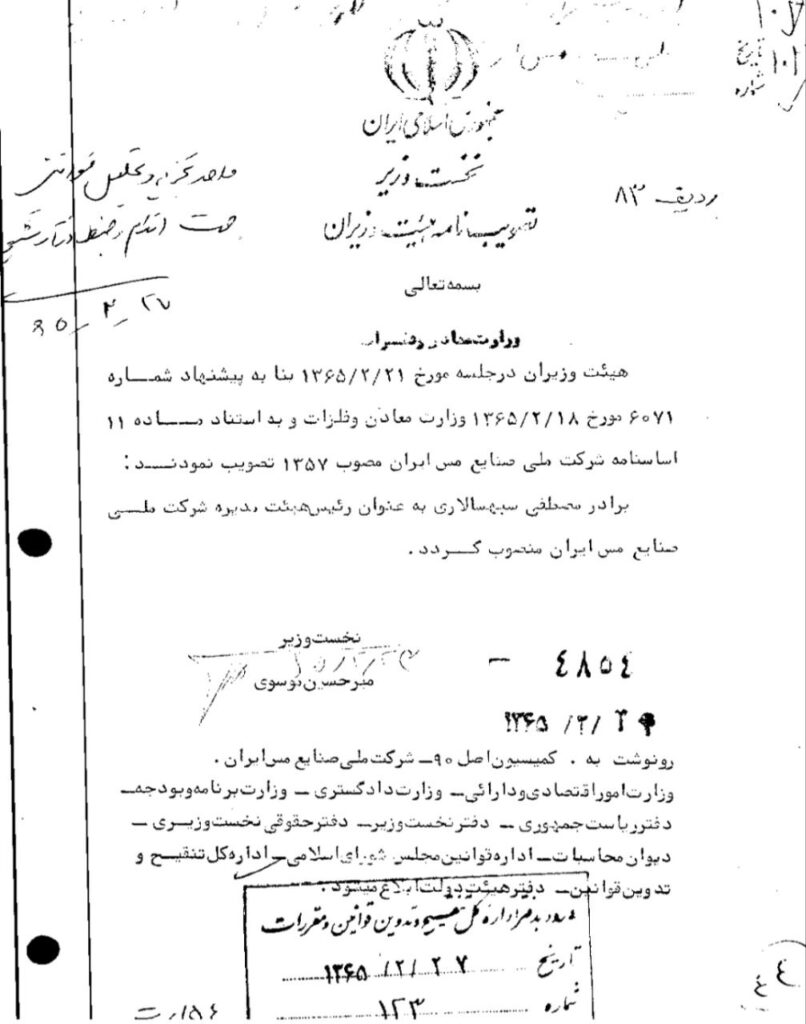 تاریخ
شماره
جمهوری اسلامی ایران
نخست وزیر
تصویب نامه هیئت وزیران
ردیف ۸۳
واحد تجزیه و تحلیل قوانین
جهت اقدام و ضبط
۲۷ـ۲ـ۶۵
بسمه تعالی
وزارت معادن و فلزات
هیئت وزیران درجلسه مورخ ۱۳۶۵/۲/۲۱ بنا به پیشنهاد شمـــاره
۶۰۷۱ مورخ ۱۳۶۵/۲/۱۸ وزارت معادن وفلزات و به استناد مـــاده ۱۱
اساسنامه شرکت ملی صنایع مس ایران مصوب ۱۳۵۷ تصویب نمودنـــد :
برادر مصطفی سپهسالاری به عنوان رئیس هیئت مدیره شرکت ملـــی
صنایع مس ایران منصوب گـــردد .
نخست وزیر
میرحسین موسوی
۴۸۵۴ –
۱۳۶۵ /۲/
رونوشت به . کمیسیون اصل ۹۰ــ شرکت ملی صنایع مس ایران .
وزارت امور اقتصادی و دارائی ــ وزارت دادگستری ــ وزارت برنامه و بودجه ــ
دفتر ریاست جمهوری ــ دفتر نخست وزیر ــ دفتر حقوقی نخست وزیــری ــ
دیوان محاسبات ــ اداره قوانین مجلس شورای اسلامی ــ اداره کل تنقیـح و
تدوین قوانین ــ دفتر هیئت دولت ابلاغ میشود .
ورود به دفتر اداره کل تنقیح و تدوین قوانین و مقررات
تاریخ ۱۳۶۵ /۲/ ۲۷
شماره ۱۲۳